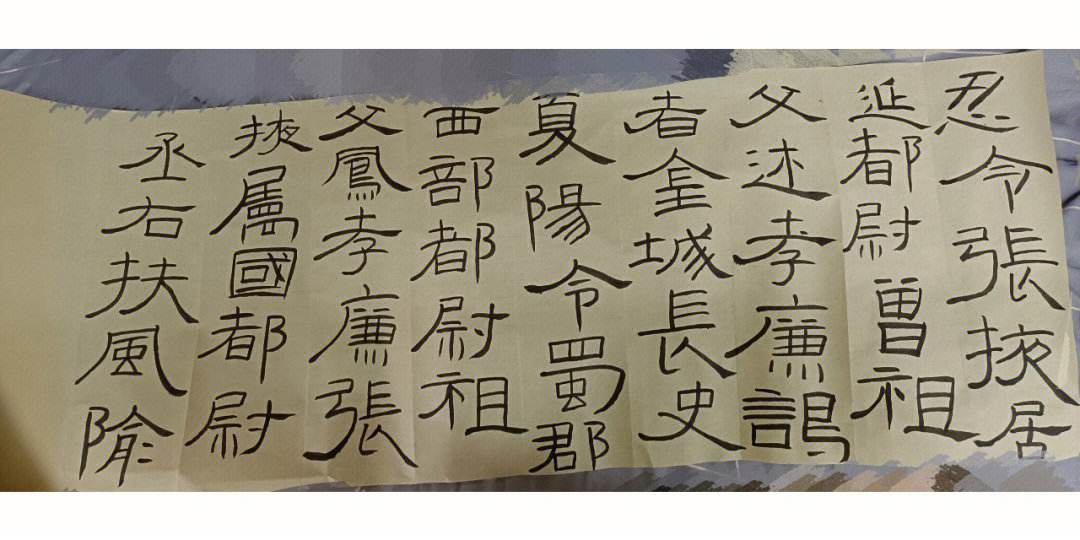 忍令張掖居
延都尉曾祖
父述孝廉謁
者金城長史
夏陽令蜀郡
西部都尉祖
父鳳孝廉張
掖屬國都尉
丞右扶風隃